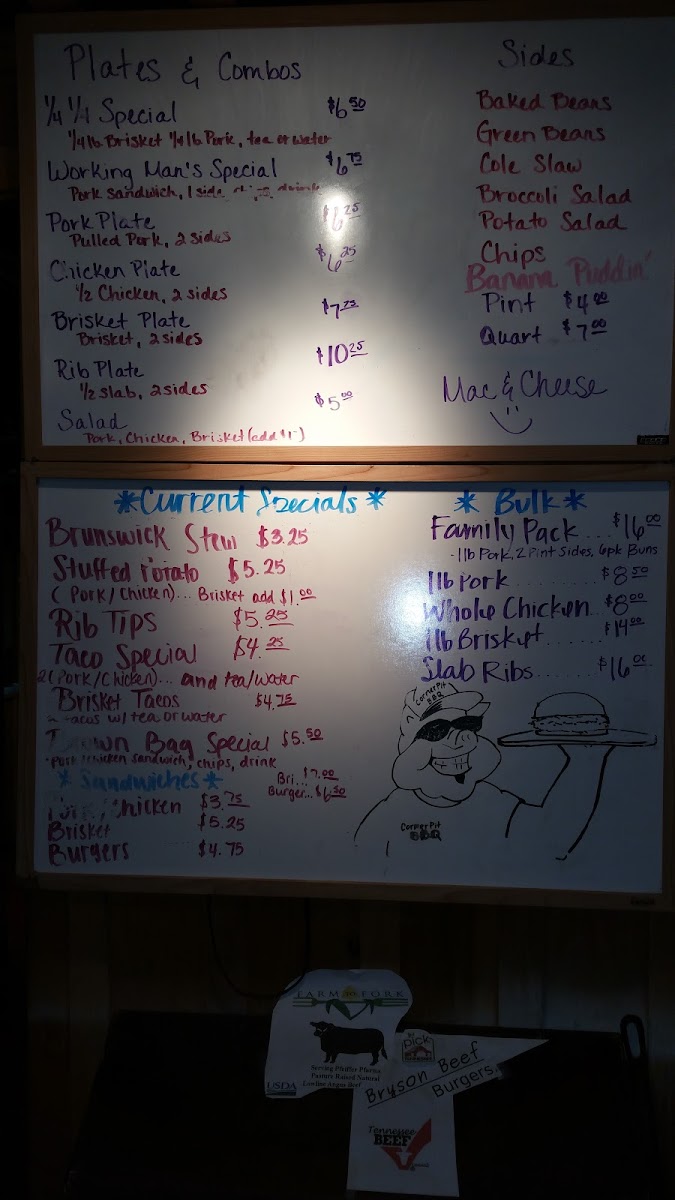 Plates & Combos
1/4 1/4 Special $6.50
1/4 lb Brisket 1/4 lb Pork, tea or water
Working Man's Special $6.75
Pork sandwich, 1 side, chips, drink
Pork Plate $6.25
Pulled Pork, 2 sides
Chicken Plate $6.25
1/2 Chicken, 2 sides
Brisket Plate $7.25
Brisket, 2 sides
Rib Plate $10.25
1/2 slab, 2 sides
Salad $5.00
Pork, Chicken, Brisket (add $1)
Sides
Baked Beans
Green Beans
Cole Slaw
Broccoli Salad
Potato Salad
Chips
Banana Puddin'
Pint $4.00
Quart $7.00
Mac & Cheese
*Current Specials*
Brunswick Stew $3.25
Stuffed Potato $5.25
(Pork/Chicken)... Brisket add $1.00
Rib Tips $5.25
Taco Special $4.25
2 (Pork/Chicken)... and tea/water
Brisket Tacos $4.75
Tacos w/ tea or water
Brown Bag Special $5.50
Pork/Chicken sandwich, chips, drink
Bri... $7.00
Burger... $6.50
*Sandwiches*
Pork/Chicken $3.75
Brisket $5.25
Burgers $4.75
*Bulk*
Family Pack... $16.00
- 1 lb Pork, 2 Pint Sides, 6pk Buns
1 lb Pork....... $8.50
Whole Chicken... $8.00
1 lb Brisket....... $14.00
Slab Ribs....... $16.00
Corner Pit
BBQ
Corner Pit
BBQ
FARM to FORK
Serving Pfeiffer Pfarms
Pasture Raised Natural
Lowline Angus Beef
USDA
Pick
Bryson Beef
Burgers.
Tennessee
BEEF